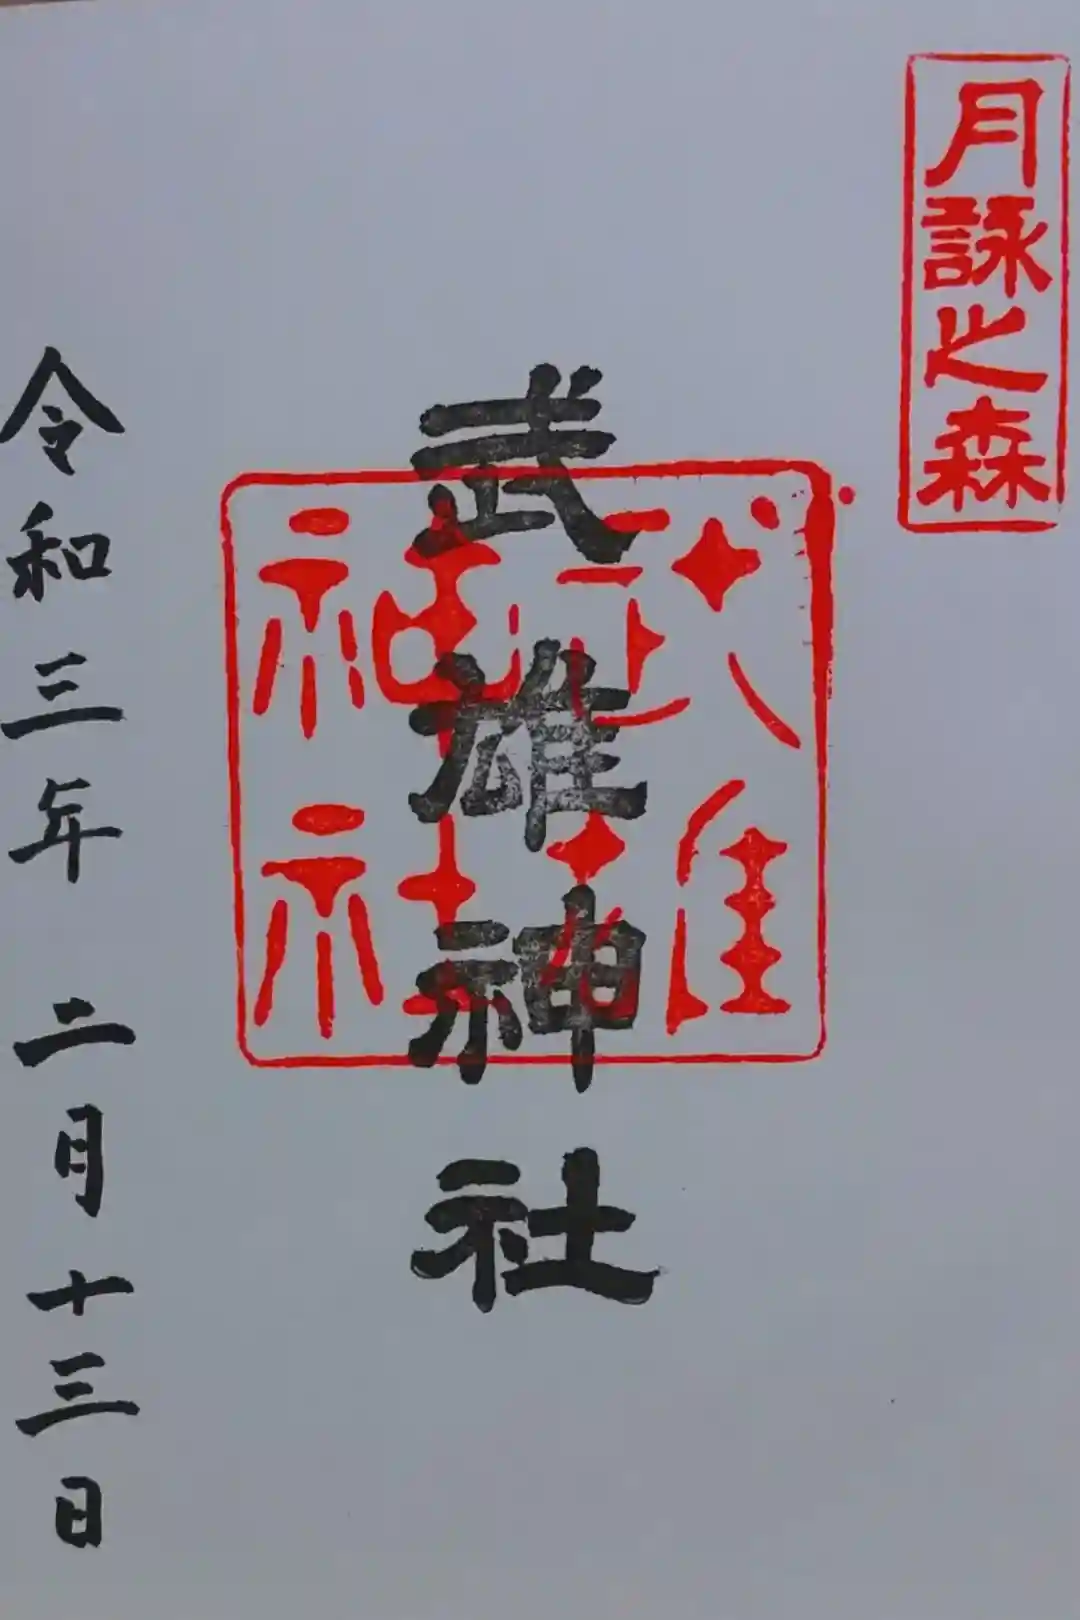 月詠之森
武雄神社
武雄神社
令和三年 二月十三日